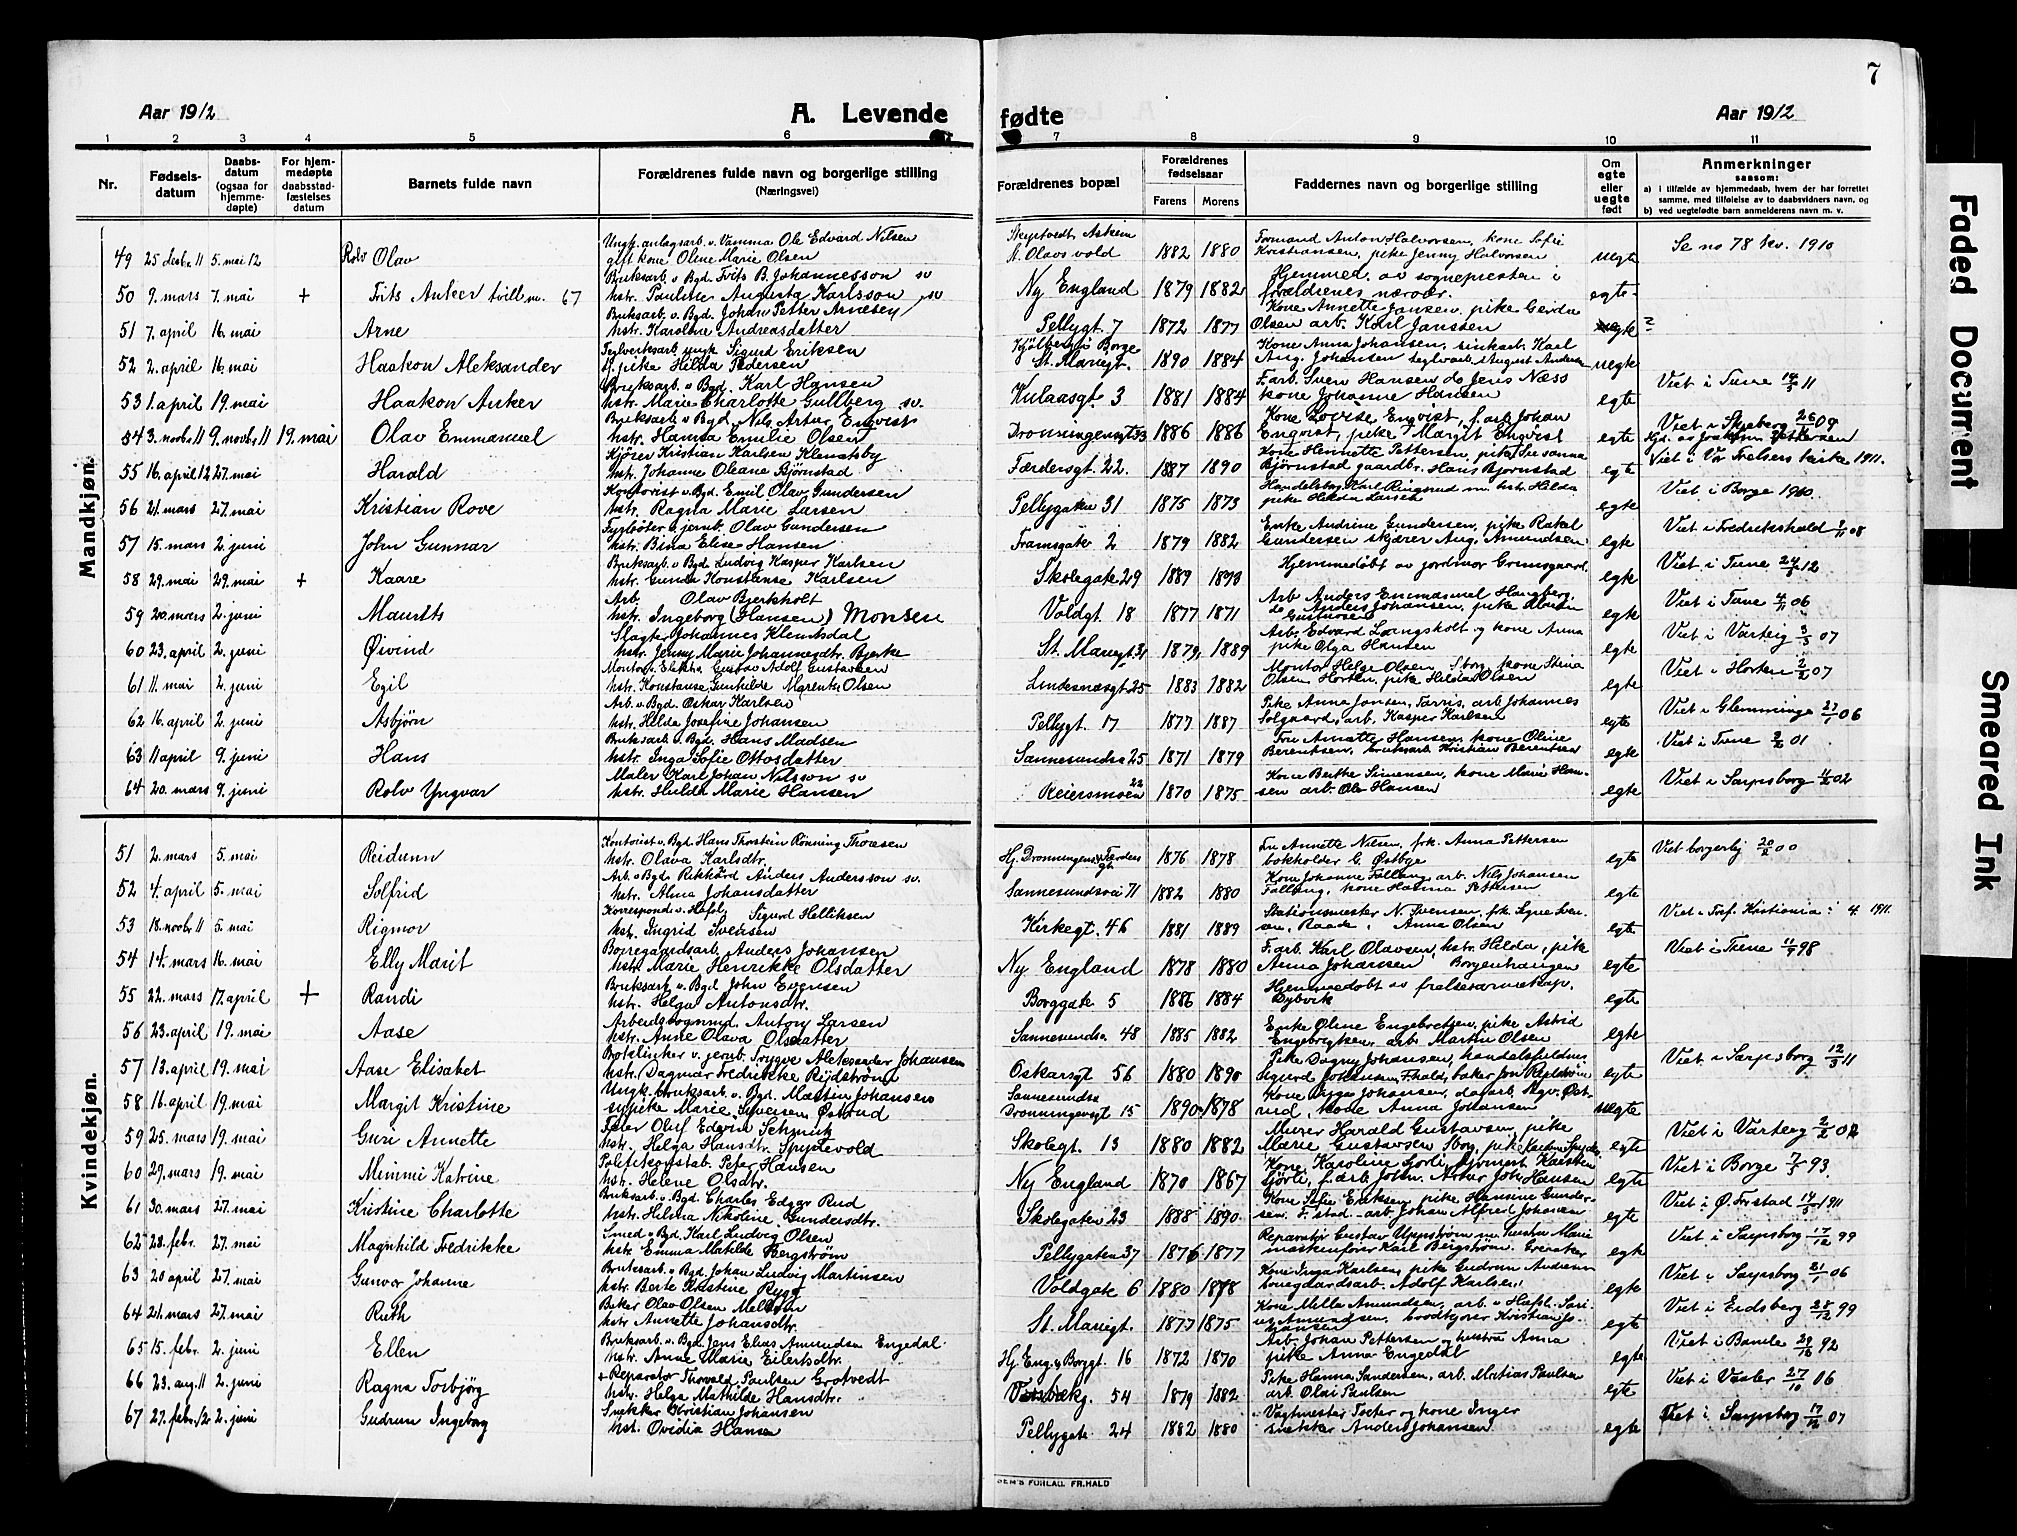 7
Aar 1912
A. Levende
fødte
Aar 1912
1 2 3 4 5 6 7 8 9 10 11
Nr.
Fødsels-
datum
Daabs-
datum
(ogsaa for
hjemme-
døpte)
For hjem-
medøpte
daabsstad-
fæstelses
datum
Barnets fulde navn
Forældrenes fulde navn og borgerlige stilling
(Næringsvei)
Forældrenes bopæl
Forældrenes
fødselsaar
Farens Morens
Faddernes navn og borgerlige stilling
Om
egte
eller
uegte
født
Anmerkninger
saasom:
a) i tilfælde av hjemmedaab, hvem der har forrettet
samme, med tilføielse av to daabsvidners navn, og
b) ved uegtefødte barn anmelderens navn m. v.
Mandkjøn.
Ungk. anlagsarb. v. Vamma Ole Edvard Nilsen
49 25 desbr. 11 5. mai 12 Rolv Olav gift kone Oline Marie Olsen
Skiptvedt Askim
St. Olavs vold 1882 1880 Formand Anton Halvorsen, kone Sofie
Kristiansen, pike Jenny Halvorsen uegte Se no 78 kv. 1910
Bruksarb. v. Bgd. Frits B. Johannesson sv
50 9. mars 7. mai + Frits Anker tvill m. 67 hstr. Paulette Augusta Karlsson sv
Ny England 1879 1882 Hjemmed. av sognepresten i
forældrenes nærvær. egte
Bruksarb. v. Bgd. Johan Petter Arnesen
51 7. april 16. mai Arne hstr. Karoline Andreasdatter
Pellygt. 7 1872 1877 Kone Annette Jansen, pike Gerda
Olsen arb. Karl Janssen egte ?
Teglverksarb. ungk. Sigurd Eriksen
52 2. april 16. mai Haakon Aleksander pike Hilda Pedersen
Kjølberg i Borge
St. Mariegt. 1890 1884 Kone Anna Johansen, sinkarb. Karl
Aug. Johansen teglvarb. August Andersen uegte
Bruksarb. v. Bgd. Karl Hansen
53 1. april 19. mai Haakon Anker hstr. Marie Charlotte Gullberg sv.
Kulaasgt. 3 1881 1884 F. arb. Sven Hansen do Jens Næss
kone Johanne Hansen egte Viet i Tune 14/5 11
Bruksarb. v. Bgd. Nils Artur Enqvist
54 3. novbr. 11 9. novbr. 11 19. mai Olav Emmanuel hstr. Hanna Emilie Olsen
Dronningensgt 53 1886 1886 Kone Lovise Enqvist, f. arb. Johan
Enqvist, pike Margit Enqvist egte Viet i Skjeberg 26/ 09
Kjører Kristian Karlsen Klematsby
55 16. april 12 27. mai Harald hstr. Johanne Oleane Bjørnstad
Færdersgt. 22. 1887 1890 Kone Hennette Pettersen, pike Susanna
Bjørnstad gaardbr. Hans Bjørnstad egte Viet i Vor Frelsers kirke 1911.
Kontorist v. Bgd. Emil Olav Gundersen
56 21. mars 27. mai Kristian Rove hstr. Ragna Marie Larsen
Pellygaten 31 1875 1873 Handelsbg. Karl Ringsrud m. hstr. Hilda
pike Helda Larsen egte Viet i Borge 1900.
Fyrbøter v. jernb. Olav Gundersen
57 15. mars 2. juni John Gunnar hstr. Bina Elise Hansen
Framsgate 2 1879 1882 Enke Andrine Gundersen, pike Rakel
Gundersen skjærer Aug. Amundsen egte Viet i Fredrikshald 1/11 08
Bruksarb. v. Bgd. Ludvig Kasper Karlsen
58 29. mai 29. mai + Kaare hstr. Gunda Konstanse Karlsen
Skolegate 29 1889 1890 Hjemmedøbt av jordmor Grimsgaard. egte Viet i Tune 24/3 12
Arb. Olav Bjerkholt
59 20. mars 2. juni Mauritz hstr. Ingeborg (Hansen) Monsen
Voldgt. 18 1877 1871 Arb Anders Emmanuel Hangberg,
do Anders Johansen, pike
Gustavsen egte Viet i Tune 4/11 06
Slagter Johannes Klemtsdal
60 23. april 2. juni Øivind hstr. Jenny Marie Johannesdtr. Bjerke
St. Mariegt. 31 1879 1889 Arb. Edvard Langsholt og kone Anna
pike Olga Hansen egte Viet i Varteig 3/3 07
Montør v. Elektr. Gustav Adolf Gustavsen
61 11. mai 2. juni Egil hstr. Konstanse Gunhilde Marente Olsen
Lindesnæsgt. 25 1883 1882 Montør Helge Olsen Sborg, kone Stina
Olsen Horten, pike Hilda Olsen egte Viet i Horten 2/2 07
Arb. v. Bgd. Oskar Karlsen
62 16. april 2. juni Asbjørn hstr. Hilda Josefine Johansen
Pellygt. 17 1877 1887 Pike Anna Jonsen, Farris, arb. Johannes
Solgaard, arb. Kasper Karlsen egte Viet i Glemminge 27/1 06
Bruksarb. v. Bgd. Hans Madsen
63 11 april 9. juni Hans hstr. Inga Sofie Ottosdatter
Sannesundsv 25 1871 1879 Fru Annette Hansen, kone Oline
Berentsen, bruksarb. Kristian Berentsen egte Viet i Tune 2/6 01
Maler Karl Johan Nilsson sv
64 20. mars 9. juni Rolv Yngvar hstr. Hulda Marie Hansen
Reiersmoen 22 1870 1875 Kone Berthe Simensen, kone Marie Han-
sen arb. Ole Hansen egte Viet i Sarpsborg 4/5 02
Kvindekjøn.
Kontorist v. Bgd. Hans Thorstein Rønning Thoresen
51 2. mars 5. mai Reidunn hstr. Olava Karlsdtr.
Hj. Dronningens & Færders gt 1876 1878 Fru Annette Nilsen, frk. Anna Pettersen
bokholder G. Østbye egte Viet borgerlig 20/2 00
Arb. v. Bgd. Rikhard Anders Andersson sv.
52 4. april 5. mai Solfrid hstr. Alma Johansdatter
Sannesundsvei 71 1882 1880 Kone Johanne Follang, arb. Nils Johansen
Follang, kone Hanna Pettersen egte
Korrespond. v. Hafsl. Sigurd Helliksen
53 18. novbr. 11 5. mai Rigmor hstr. Ingrid Svensen
Kirkegt. 46 1881 1889 Stationsmester N. Svensen, frk. Signe Sven-
sen, Raade, Anna Olsen egte Viet i Tref. Kristiania 4. 1911.
Borregaardsarb. Anders Johansen
54 14. mars 16. mai Elly Marit hstr. Marie Henrikke Olsdatter
Ny England 1878 1880 F. arb. Karl Olavsen, hstr. Hilda, pike
Anna Johansen, Borgenhaugen egte Viet i Tune 11/9 98
Bruksarb. v. Bgd John Evensen
55 22. mars 17. april + Randi hstr. Helga Antonsdtr.
Borggate 5 1886 1884 Hjemmedøbt av frelsesarmekap.
Dybvik egte
Arbeidsbognmd. Anton Larsen
56 23. april 19. mai Aase hstr. Anne Olava Olsdatter
Sannesundsv. 48 1885 1882 Enke Oline Engebretsen, pike Astrid
Engebrigtsen, arb. Martin Olsen egte
Botslinker v. jernb. Trygve Aleksander Johansen
57 13. april 19. mai Aase Elisabet hstr. Dagmar Fredrikke Rydstrøm
Oskarsgt 56 1880 1890 Pike Dagny Johansen, handelsfuldm.
Sigurd Johansen, F.hald, baker Jon Rydstrøm egte Viet i Sarpsborg 12/3 11
Ungk. bruksarb. v. Bgd. Martin Johansen
58 16. april 19. mai Margit Kristine sypike Marie Syversen Østrud
Sannesundsv
Dronningensgt 15 1890 1878 Kone Olga Johansen, dagarb. Hgv. Øst-
rud, kone Anna Johansen uegte
Feier Oluf Edvin Schmitz
59 25. mars 19. mai Guri Annette hstr. Helga Hansdtr. Spydevold
Skolegt. 13 1880 1882 Murer Harald Gustavsen, pike
Marie Gustavsen Sborg, pike egte Viet i Varteig 2/2 02
Politikonstab. Peter Hansen
60 29. mars 19. mai Mimmi Katrine hstr. Helene Olsdtr.
Ny England 1870 1867 Kone Karoline Gjorli, Karsten
Gjorli, f. arb. John. Artur Joh. Hansen egte Viet i Borge 7/5 93.
Bruksarb. v. Bgd. Charles Edgar Rud
61 30. mars 27. mai Kristine Charlotte hstr. Helma Nikoline Gundersdtr.
Skolegaten 23 1888 1890 Kone Sofie Eriksen, pike Hansine Gunder-
sen. F.stad. arb. Johan Alfred Johansen egte Viet i Ø. Fr.stad 14/5 1911
Smed v. Bgd. Karl Ludvig Olsen
62 28. febr. 27. mai Magnhild Fredrikke hstr. Emma Matilde Bergstrøm
Pellygaten 37 1876 1877 Reparatør Gustav Uppstrøm m. hustru Marie
maskinfører Karl Bergstrøm. Greaaker egte Viet i Sarpsborg 17/12 99
Bruksarb. v. Bgd. Johan Ludvig Martinsen
63 20 april 27. mai Gunvor Johanne hstr. Berte Kristine Rygg
Voldgate 6 1880 1878 Kone Inga Karlsen, pike Gudrun Andersen
bruegaardsarb. Adolf Karlsen. egte Viet i Sarpsborg 31/1 06
Beker Olav Olsen Mellom
64 21. mars 27. mai Ruth hstr. Annette Johansdtr.
St. Mariegt. 1877 1875 Kone Milla Amundsen, arb. v. Hafsl. Sari-
us Amundsen, brødkjører Kristian Jo-
hansen egte Viet i Eidsberg 28/12 99
Bruksarb. v. Bgd. Jens Elias Amundsen Engedal.
65 15. febr. 2. juni Ellen hstr. Anne Marie Eilertsdtr.
Hj. Eng. & Borggt. 16 1872 1870 Arb. Johan Pettersen og hustru Anna
pike Anna Engedal egte Viet i Bamle 29/6 92
+ Reparatør Thorvald Paulsen Grotvedt
66 23. aug. 11 2. juni Ragna Torbjørg hstr. Helga Mathilde Hansdtr.
Torsbækg. 54 1879 1882 Pike Hanna Sandersen, arb. Matias Paulsen
arb. Olai Paulsen egte Viet i Vaaler 27/10 06
Snekker Kristian Johansen
67 27. febr. 12 2. juni Gudrun Ingeborg hst. Ovidia Hansen
Pellygate 24 1882 1880 Vagtmester Toeter og kone Inger
snekker Anders Johansen egte Viet i Sarpsborg 17/12 07
SEM'S FORLAG, FR.HALD
Faded Document
Smeared Ink